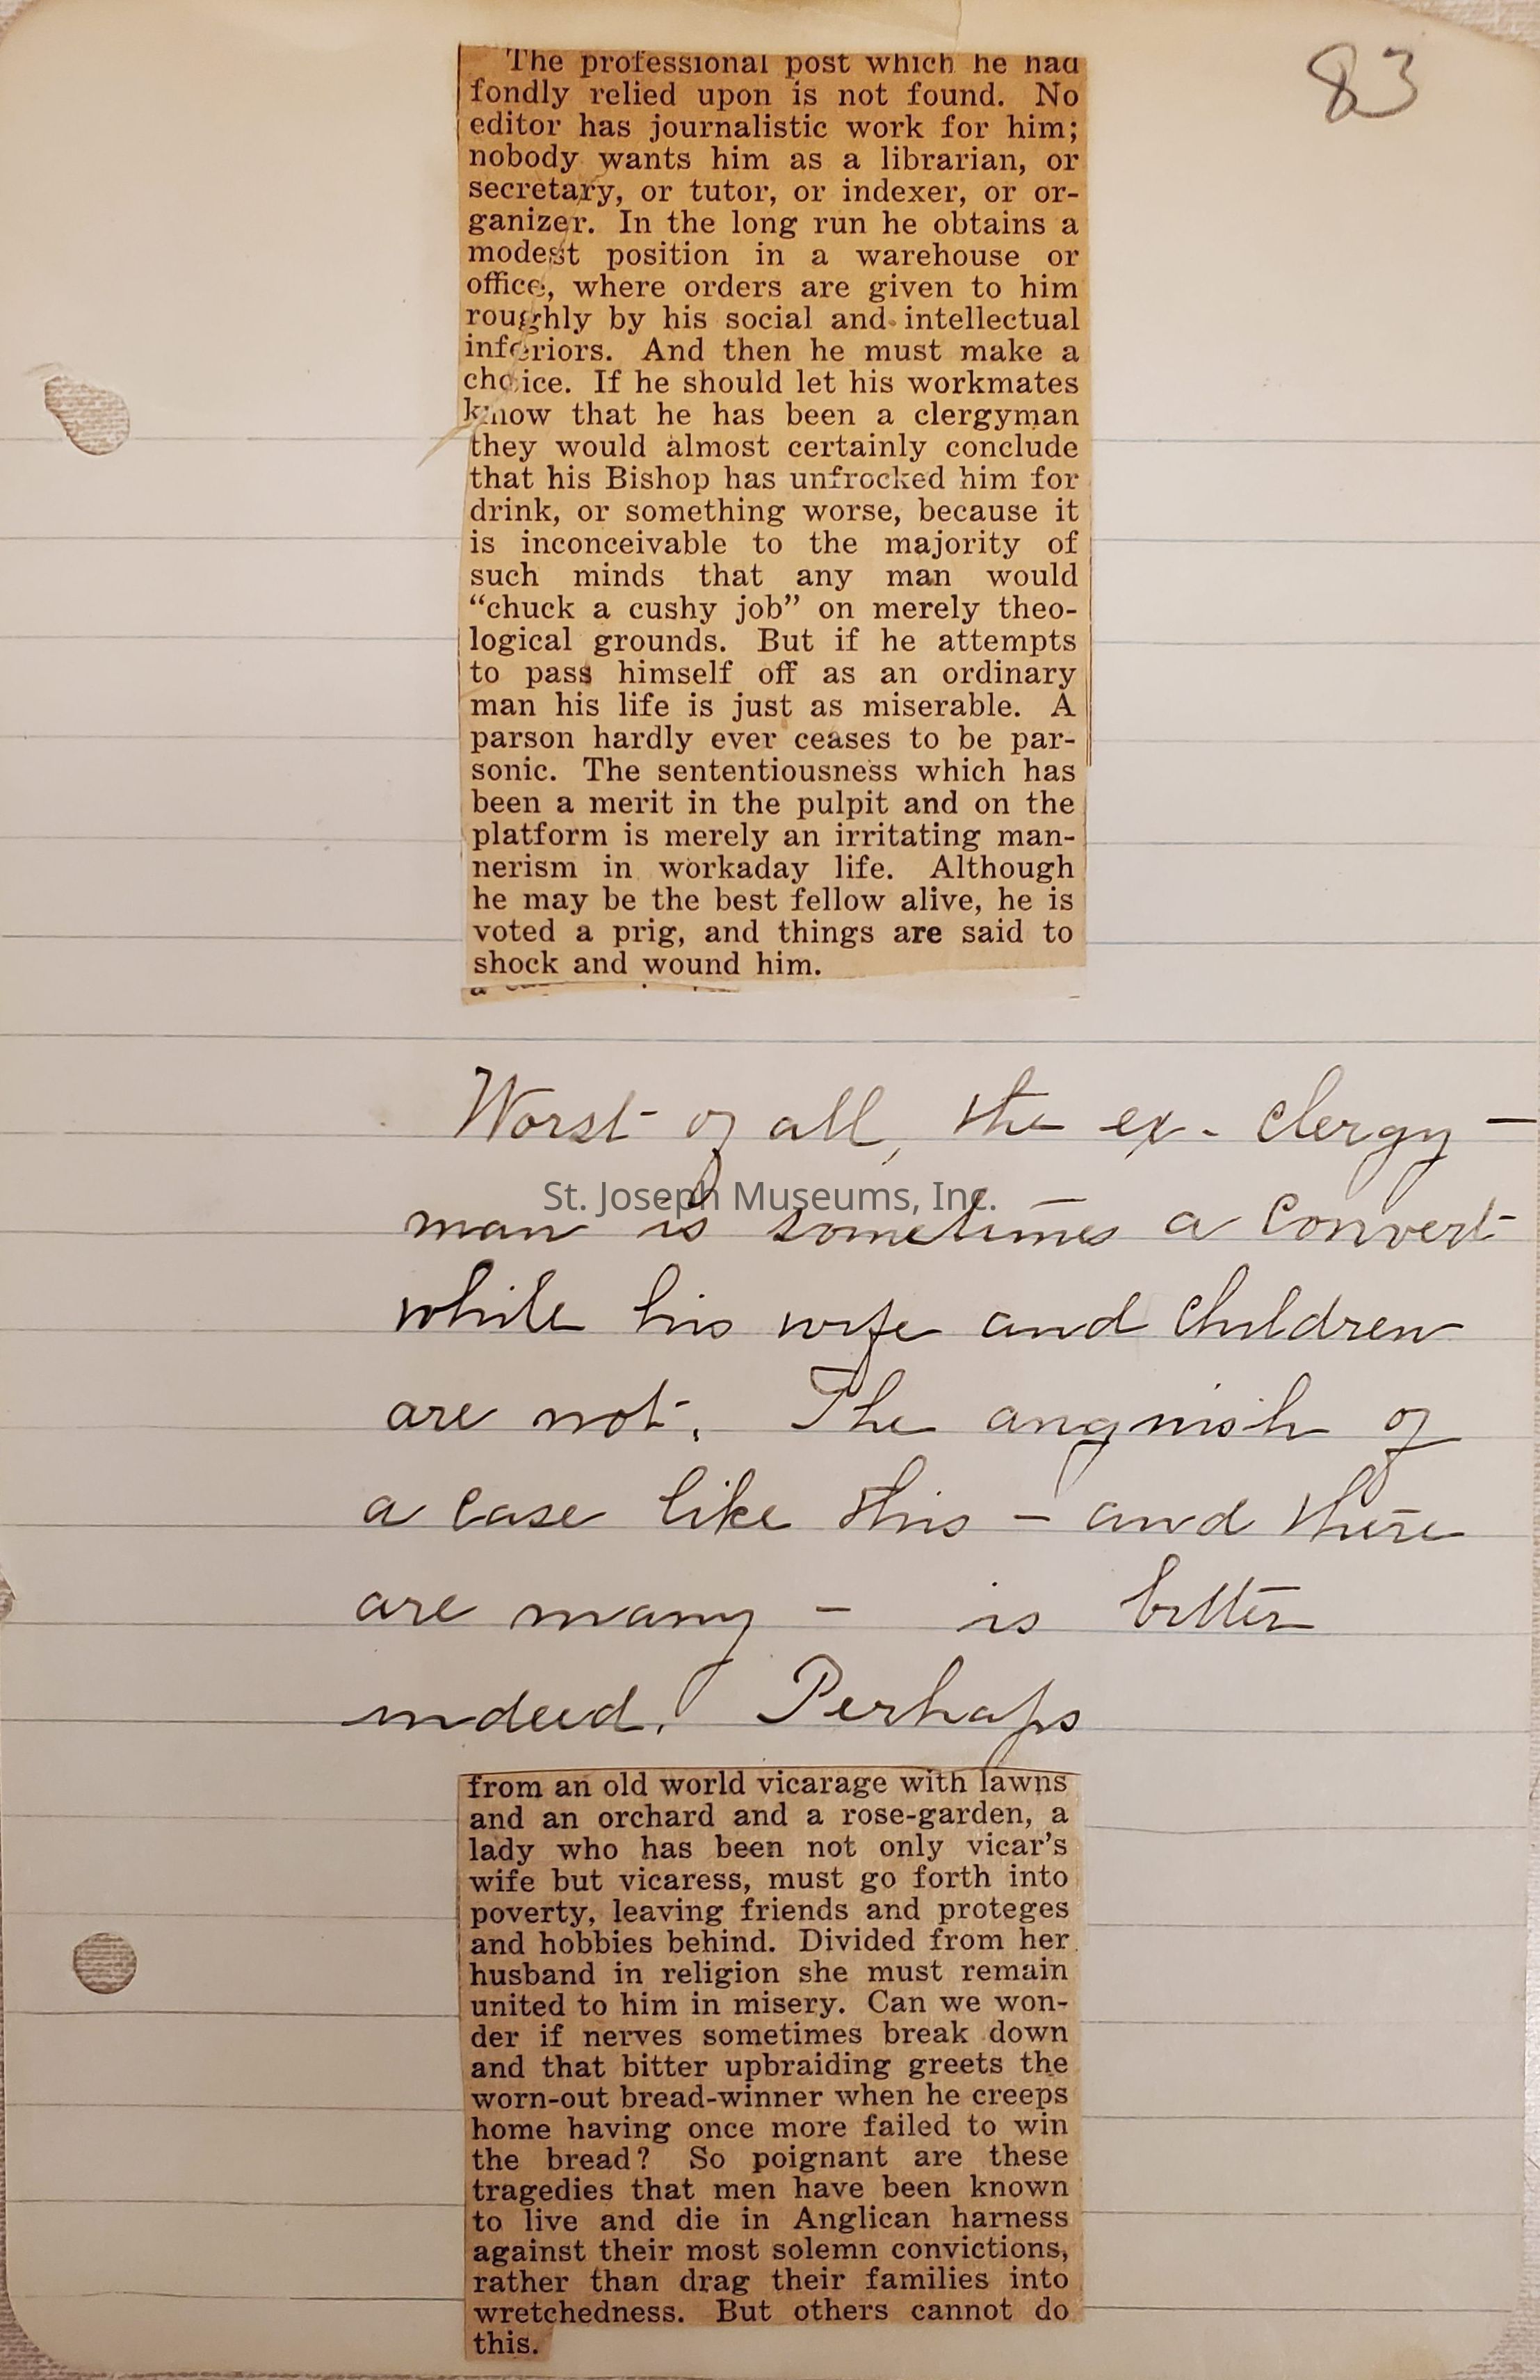 83
The professional post which he had
fondly relied upon is not found. No
editor has journalistic work for him;
nobody wants him as a librarian, or
secretary, or tutor, or indexer, or or-
ganizer. In the long run he obtains a
modest position in a warehouse or
office, where orders are given to him
roughly by his social and intellectual
inferiors. And then he must make a
choice. If he should let his workmates
know that he has been a clergyman
they would almost certainly conclude
that his Bishop has unfrocked him for
drink, or something worse, because it
is inconceivable to the majority of
such minds that any man would
“chuck a cushy job” on merely theo-
logical grounds. But if he attempts
to pass himself off as an ordinary
man his life is just as miserable. A
parson hardly ever ceases to be par-
sonic. The sententiousness which has
been a merit in the pulpit and on the
platform is merely an irritating man-
nerism in workaday life. Although
he may be the best fellow alive, he is
voted a prig, and things are said to
shock and wound him.
Worst of all, the ex-clergy-
St. Joseph Museums, Inc.
man is sometimes a convert
while his wife and children
are not. The anguish of
a case like this – and there
are many – is bitter
indeed. Perhaps
from an old world vicarage with lawns
and an orchard and a rose-garden, a
lady who has been not only vicar’s
wife but vicaress, must go forth into
poverty, leaving friends and proteges
and hobbies behind. Divided from her
husband in religion she must remain
united to him in misery. Can we won-
der if nerves sometimes break down
and that bitter upbraiding greets the
worn-out bread-winner when he creeps
home having once more failed to win
the bread? So poignant are these
tragedies that men have been known
to live and die in Anglican harness
against their most solemn convictions,
rather than drag their families into
wretchedness. But others cannot do
this.